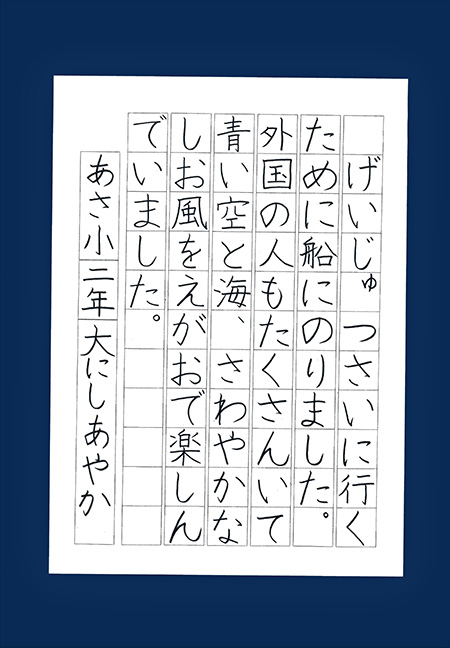 げいじゅつさいに行く
ために船にのりました。
外国の人もたくさんいて
青い空と海、さわやかな
しお風をえがおで楽しん
でいました。
あさ小二年大にしあやか